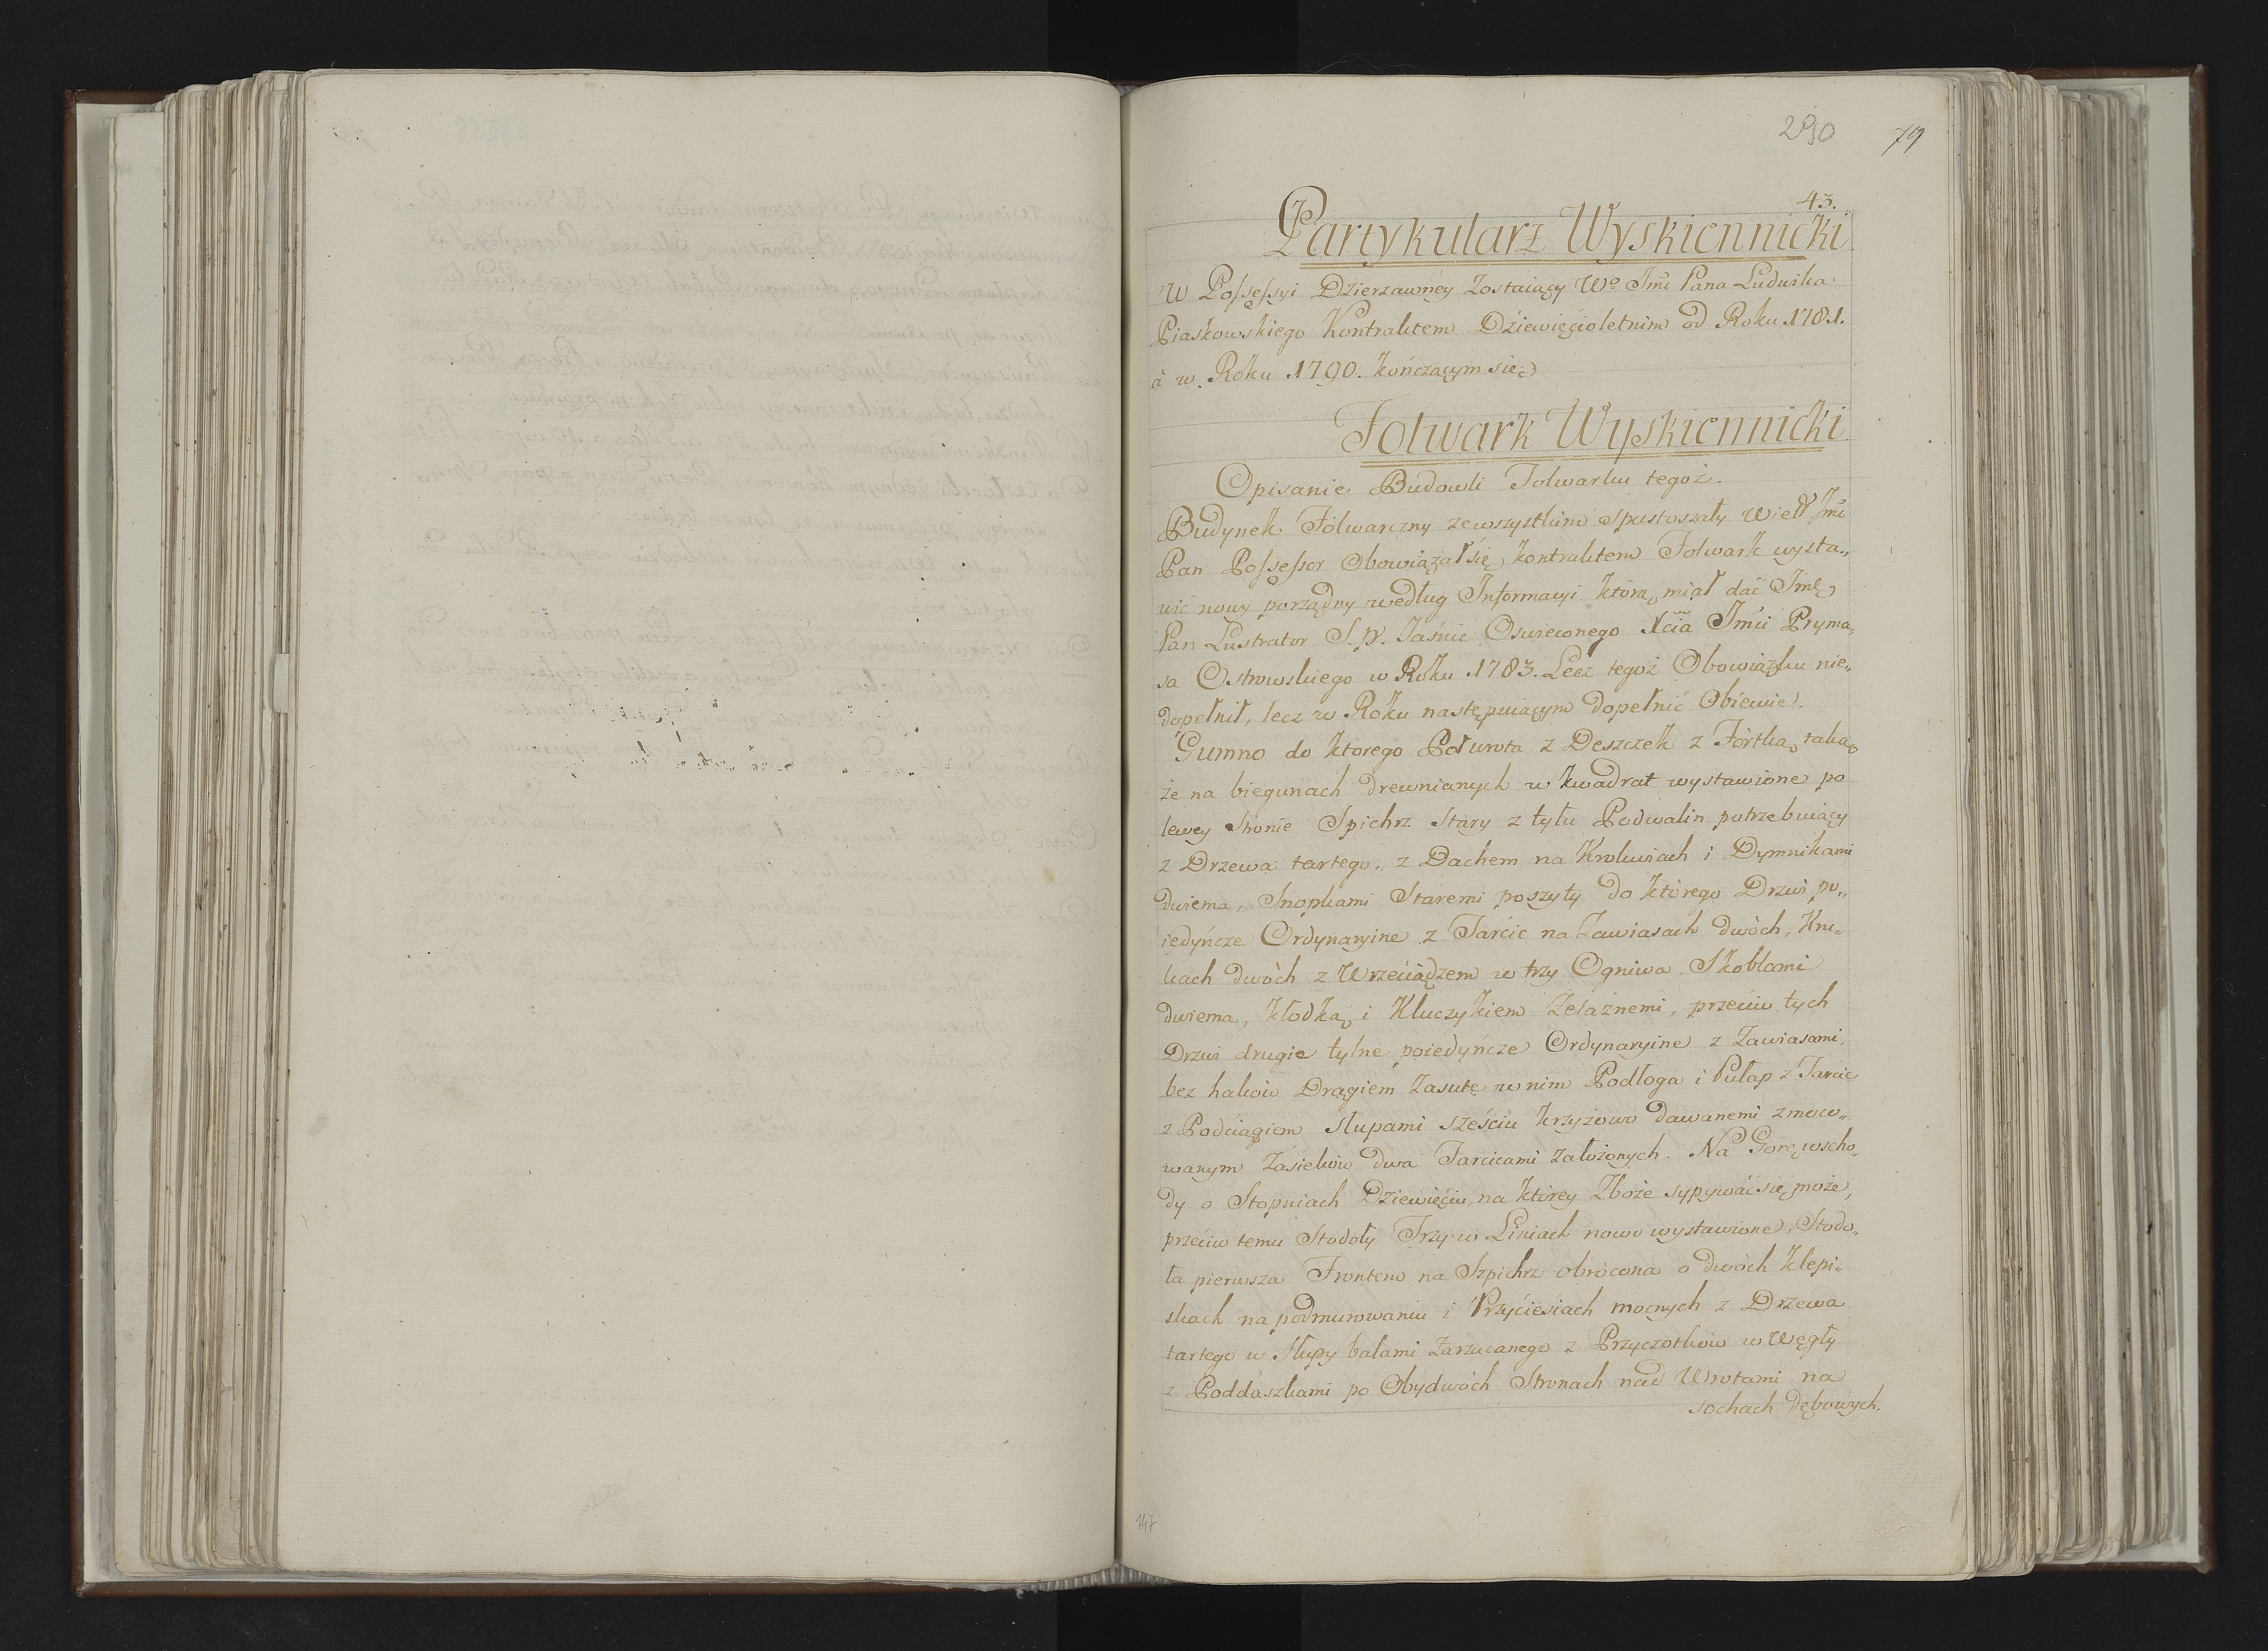 290 79
43.
Partykularz Wyskiennicki
W Possessyi Dzierzawney Zostaiący Wo Jmć Pana Ludwika
Piaskowskiego Kontraktem Dziewięcioletnim od Roku 1781.
à w Roku 1790. kończącym się
Folwark Wyskiennicki
Opisanie Budowli Folwarku tegoż.
Budynek Folwarczny zewszystkim spustoszały Wiel Jmć
Pan Possessor Obowiązał się kontraktem Folwark wysta„
wić nowy porządny według Informacyi którą miał dać Jmć
Pan Lustrator S. p. Jaśnie Oswieconego Xcia Jmci Pryma„
sa Ostrowskiego w Roku 1783. Lecz tegoż Obowiązku nie„
dopełnił, lecz w Roku następuiącym dopełnić Obiecuie.
Gumno do ktorego Połwrota z Deszczek z Fórtką taką„
że na biegunach drewnianych w kwadrat wystawione po
lewey stronie Spichrz Stary z tyłu Podwalin potrzebuiący
z Drzewa tartego, z Dachem na Krokwiach i Dymnikami
dwiema, Snopkami Staremi poszyty do którego Drzwi po„
iedyńcze Ordynaryine z Tarcic na Zawiasach dwóch, Kru„
kach dwóch z Wrzeciądzem w trzy Ogniwa, Skoblami
dwiema, kłodką i Kluczykiem Zelaznemi, przeciw tych
Drzwi drugie tylne poiedyńcze Ordynaryine z Zawiasami,
bez haków Drągiem Zasutę w nim Podłoga i Pułap z Tarcic
z Podciągiem słupami sześciu krzyżowo dawanemi zmoco„
wanym Zasieków dwa Tarcicami założonych. Na Gorę wscho„
dy o Stopniach Dziewięciu, na którey Zboże sypywać się może,
przeciw temu Stodoły Trzy w Liniach nowo wystawione, Stodo„
ła pierwsza Frontem na Szpichrz obrócona o dwóch klepi„
skach na podmurowaniu i Przyciesiach mocnych z Drzewa
tartego w Słupy balami Zarzucanego z Przyczotków w Węgły
z Poddaszkami po Obydwóch Stronach nad Wrotami na
sochach dębowych.
147